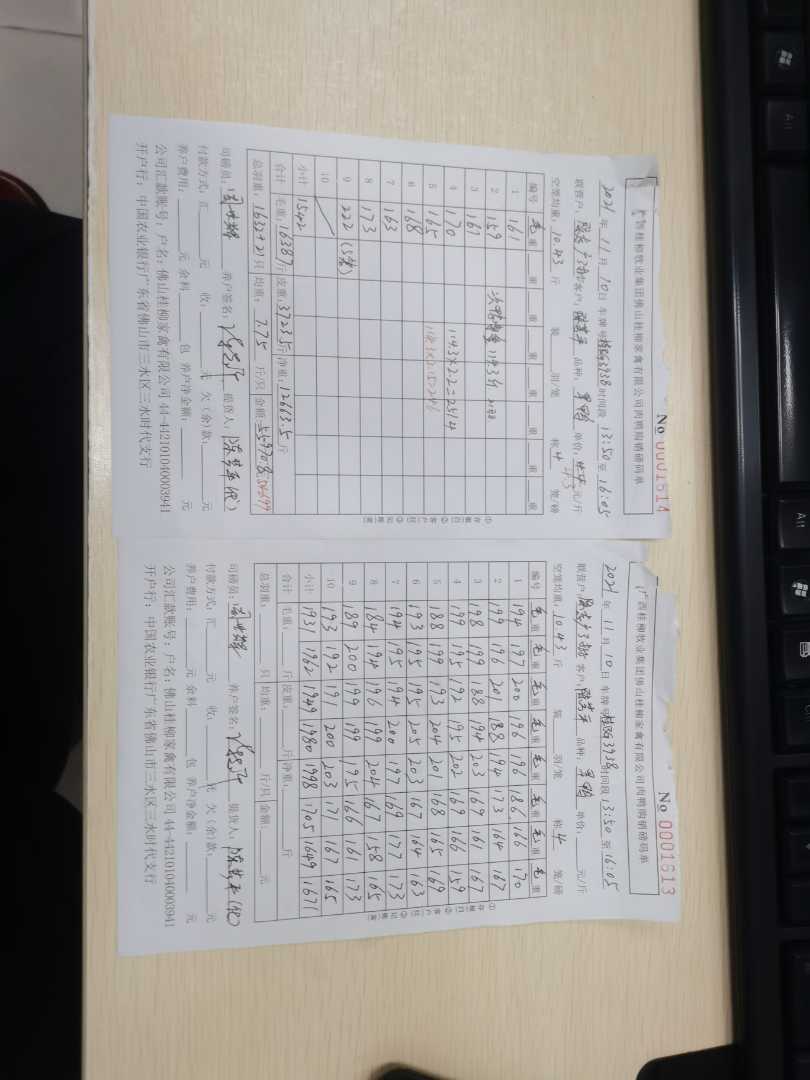 广西桂柳牧业集团佛山桂柳家禽有限公司肉鸭购销磅码单
No 0001614
2021 年 11 月 10 日 车牌号 3938 时间段 13:50 至 16:05
联营户: 客户: 品种: 单价: 元/斤
4.3
空笼均重: 10.43 斤 装 羽/笼 称 4 笼/磅
编号 毛重 重 重 重 重 重 重 重
1 161
2 159
3 167
4 170
5 165
6 168
7 163
8 173
9 222 (5笼)
10
11.43×22=251.4
小计 1542
合计 毛重: 16387 斤 皮重: 3723.5 斤 净重: 12663.5 斤
总羽重: 1632+2 只 均重: 7.75 斤/只 金额:
司磅员: 养户签名: 提货人:
付款方式: 汇 元 收: 元 欠(余)款: 元
养户费用: 元 余料 包 养户净金额: 元
公司汇款账号: 户名: 佛山桂柳家禽有限公司 44-442101040003941
开户行: 中国农业银行广东省佛山市三水区三水时代支行
广西桂柳牧业集团佛山桂柳家禽有限公司肉鸭购销磅码单
No 0001613
2021 年 11 月 10 日 车牌号 3938 时间段 13:50 至 16:05
联营户: 客户: 品种: 单价: 元/斤
空笼均重: 10.43 斤 装 羽/笼 称 4 笼/磅
编号 毛重 毛重 毛重 毛重 毛重 毛重 毛重 毛重
1 194 197 200 196 196 186 166 170
2 199 196 201 188 194 173 164 167
3 198 199 188 194 203 169 161 167
4 199 195 192 195 202 169 166 159
5 188 199 193 204 201 168 165 169
6 193 195 195 205 203 167 164 163
7 194 195 194 200 197 169 177 173
8 184 194 196 199 204 167 158 165
9 189 200 199 199 195 166 161 173
10 193 192 191 200 203 171 167 165
小计 1931 1962 1949 1980 1998 1705 1649 1671
合计 毛重: 斤 皮重: 斤 净重: 斤
总羽重: 只 均重: 斤/只 金额: 元
司磅员: 养户签名: 提货人:
付款方式: 汇 元 收: 元 欠(余)款: 元
养户费用: 元 余料 包 养户净金额: 元
公司汇款账号: 户名: 佛山桂柳家禽有限公司 44-442101040003941
开户行: 中国农业银行广东省佛山市三水区三水时代支行
Alt
Alt